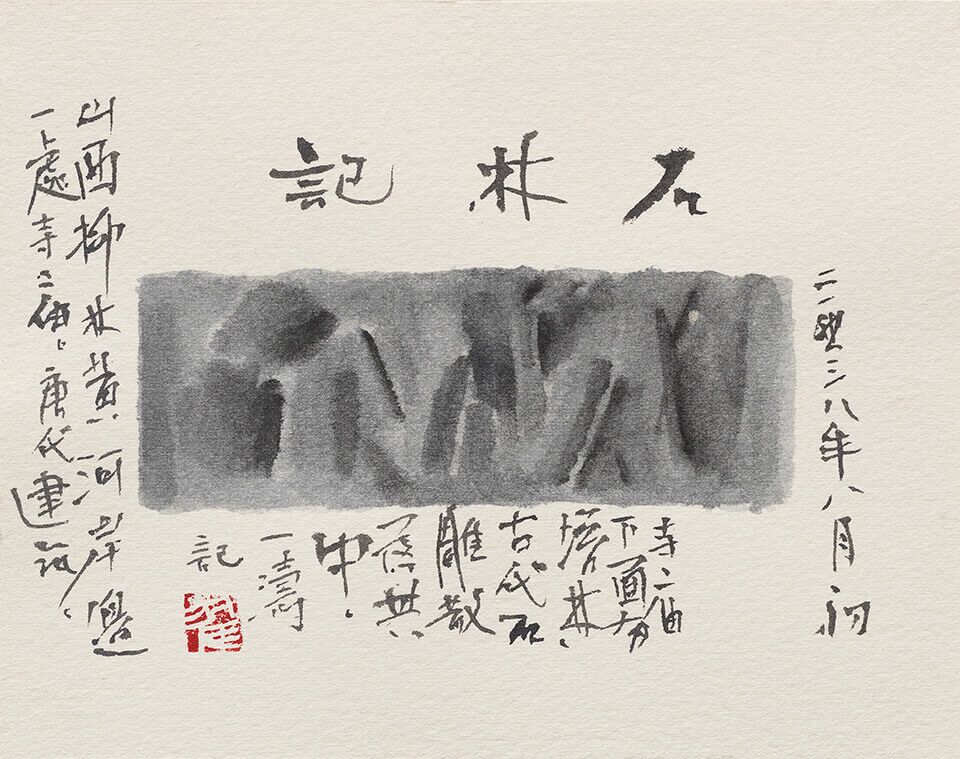 石林記
八年八月初
山西柳林黄河岸邊
一處寺 唐代建筑
寺
下面有
塔林
古代石
雕散
落其
中
一濤
記